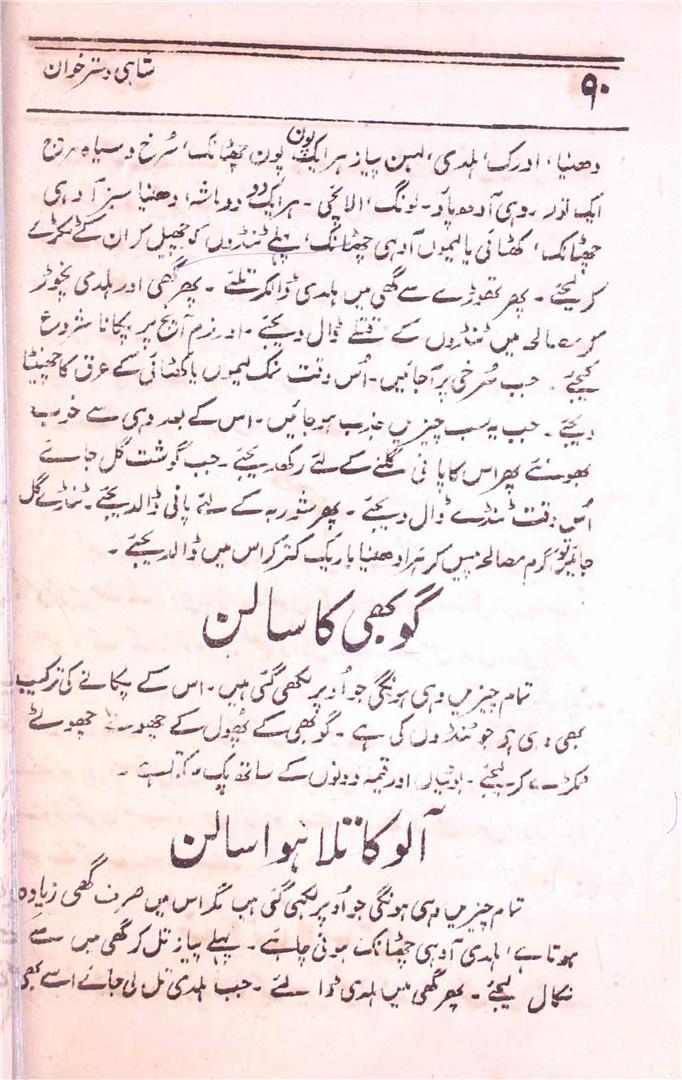 ۹۰
شاہی دسترخوان
دھنیا، ادرک، ہلدی، لہسن پیاز ہر ایک پون پون چھٹانک، سُرخ و سیاہ مرچ
ایک تولہ۔ دہی آدھ پاؤ۔ لونگ، الائچی۔ ہر ایک دو دو ماشہ، دھنیا سبز آدہی
چھٹانک، کھٹائی یا لیموں آدہی چھٹانک، پہلے ٹنڈوں کو چھیل کر ان کے ٹکڑے
کر لیجئے۔ پھر تھوڑے سے گھی میں ہلدی ڈالکر تلئے۔ پھر گھی اور ہلدی نچوڑ
کر مصالحہ میں ٹنڈوں کے قتلے ڈال دیجئے۔ اور نرم آنچ پر پکانا شروع
کیجئے۔ جب سُرخی پر آجائیں۔ اُس وقت نمک لیموں یا کھٹائی کے عرق کا چھینٹا
دیجئے۔ جب یہ سب چیزیں جذب ہو جائیں۔ اس کے بعد دہی سے خوب
بھونئے پھر اس کا پانی گلنے کے لئے رکھدیجئے۔ جب گوشت گل جائے
اُس وقت ٹنڈے ڈال دیجئے۔ پھر شوربہ کے لئے پانی ڈالدیجئے۔ ٹنڈے گل
جائیں تو گرم مصالحہ پیس کر ہرا دھنیا باریک کتر کر اس میں ڈالدیجئے۔
گوبھی کا سالن
تمام چیزیں وہی ہونگی جو اُوپر لکھی گئی ہیں۔ اس کے پکانے کی ترکیب
بھی وہی ہے جو ٹنڈوں کی ہے۔ گوبھی کے پھول کے چھوٹے چھوٹے
ٹکڑے کر لیجئے۔ بوٹیاں اور قیمہ دونوں کے ساتھ پک سکتا ہے۔
آلو کا تلا ہوا سالن
تمام چیزیں وہی ہونگی جو اُوپر لکھی گئی ہیں مگر اس میں صرف گھی زیادہ
ہوتا ہے، ہلدی آدہی چھٹانک ہونی چاہئے۔ پہلے پیاز تل کر گھی میں سے
نکال لیجئے۔ پھر گھی میں ہلدی ڈالئے۔ جب ہلدی تل لی جائے اسے بھی